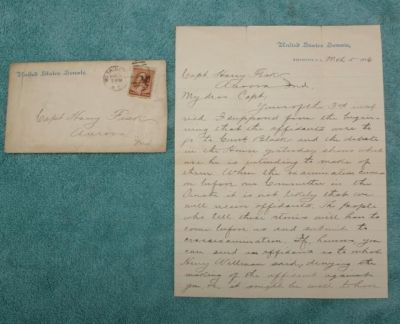 United States Senate
Capt Harry Fisk
Aurora
Ind
United States Senate,
WASHINGTON, D. C., Mch 5 1886
Capt Harry Fisk
Aurora Ind
My dear Capt.
Yours of the 3rd inst
recd I supposed from the begin-
ning that the affidavits were to
go to Black and the debate
in the House yesterday shows what
use he is intending to make of
them When the examination comes
on before our Committee in the
Senate it is not likely that we
will receive affidavits. The people
who tell these stories will have to
come before us and submit to
crossexamination. If, however, you
can send us affidavits as to what
Henry said, denying the
making of the affidavit against
you, it might be well to have